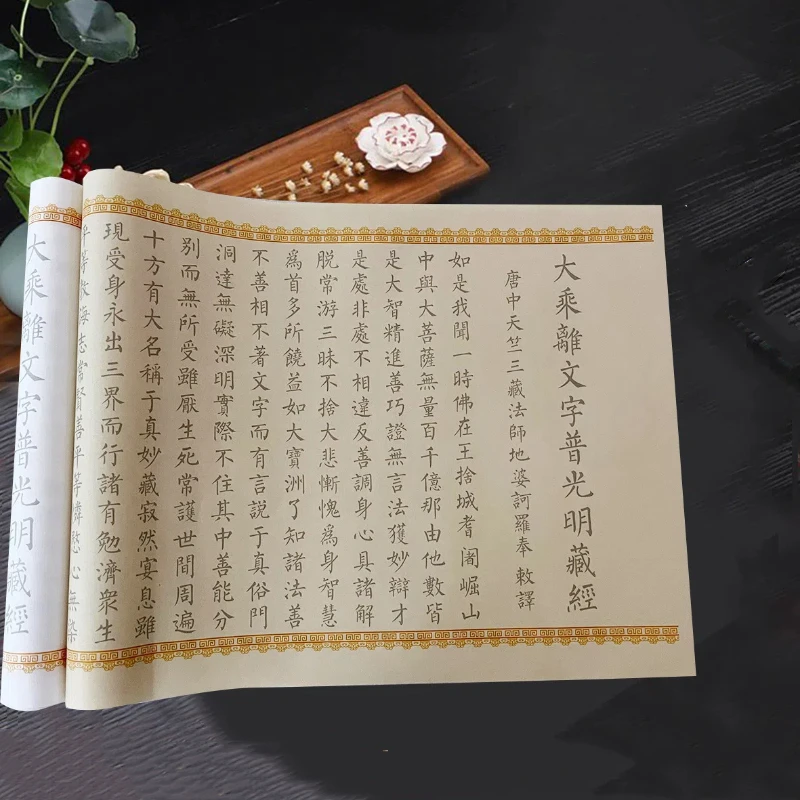 大乘離文字普光明藏經
唐中天竺三藏法師地婆訶羅奉 敕譯
如是我聞一時佛在王捨城耆闍崛山
中與大菩薩無量百千億那由他數皆
是大智精進善巧證無言法獲妙辯才
是處非處不相違反善調身心具諸解
脫常游三昧不捨大悲慚愧為身智慧
為首多所饒益如大寶洲了知諸法善
不善相不著文字而有言說于真俗門
洞達無礙深明實際不住其中善能分
別而無所受雖厭生死常護世間周遍
十方有大名稱于真妙藏寂然宴息雖
現受身永出三界而行諸有勉濟眾生
平等教誨志常賢善平等憐愍心無染
大乘離文字普光明藏經